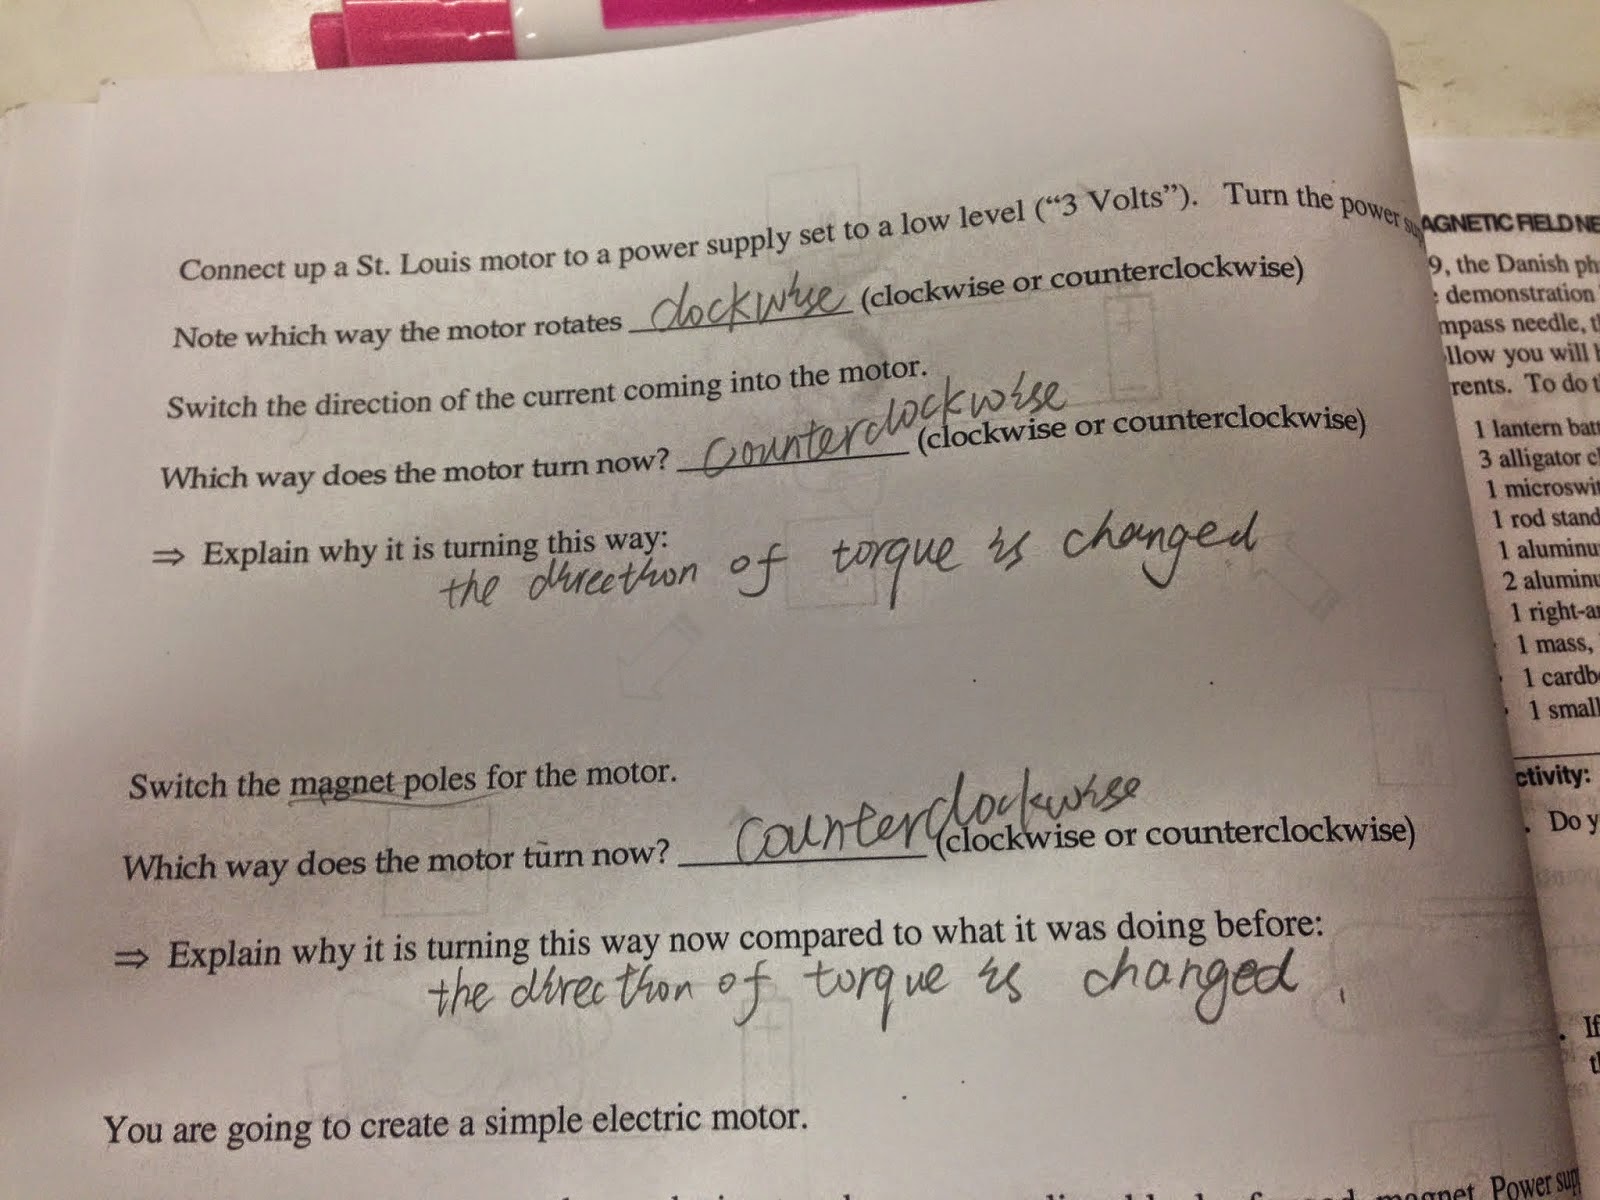 Connect up a St. Louis motor to a power supply set to a low level (“3 Volts”). Turn the power
Note which way the motor rotates clockwise (clockwise or counterclockwise)
Switch the direction of the current coming into the motor.
Which way does the motor turn now? counterclockwise (clockwise or counterclockwise)
⇒ Explain why it is turning this way:
the direction of torque is changed
Switch the magnet poles for the motor.
Which way does the motor turn now? counterclockwise (clockwise or counterclockwise)
⇒ Explain why it is turning this way now compared to what it was doing before:
the direction of torque is changed.
You are going to create a simple electric motor.
magnet Power sup
AGNETIC FIELD NE
9, the Danish ph
demonstration
mpass needle, t
llow you will
rents. To do t
1 lantern bat
3 alligator cl
1 microswi
1 rod stand
1 aluminu
2 aluminu
1 right-a
1 mass,
1 cardb
1 small
ctivity:
Do y
If